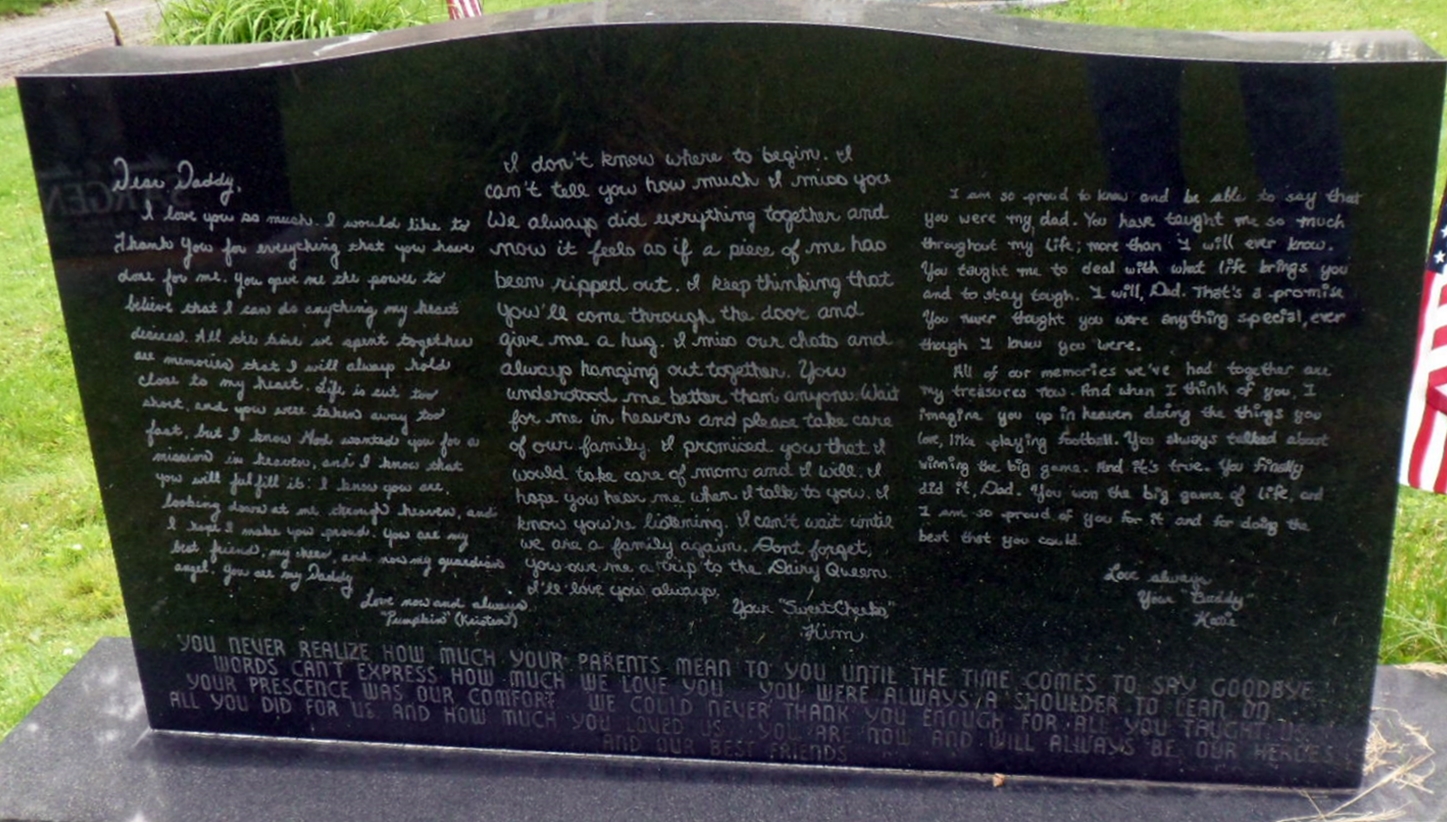 Dear Daddy,
I love you so much. I would like to
Thank You for everything that you have
done for me. You gave me the power to
believe that I can do anything my heart
desires. All the time we spent together
are memories that I will always hold
close to my heart. Life is cut too
short, and you were taken away too
fast, but I know God wanted you for a
mission in heaven, and I know that
you will fulfill it! I know you are
looking down at me through heaven, and
I hope I make you proud. You are my
best friend, my hero, and now my guardian
angel. You are my Daddy
Love now and always
"Pumpkin" (Kristen)
I don't know where to begin. I
can't tell you how much I miss you
We always did everything together and
now it feels as if a piece of me has
been ripped out. I keep thinking that
you'll come through the door and
give me a hug. I miss our chats and
always hanging out together. You
understood me better than anyone. Wait
for me in heaven and please take care
of our family. I promised you that I
would take care of mom and I will. I
hope you hear me when I talk to you. I
know you're listening. I can't wait until
we are a family again. Dont forget,
you owe me a trip to the Dairy Queen.
I'll love you always,
Your "Sweet Cheeks"
Kim
I am so proud to know and be able to say that
you were my dad. You have taught me so much
throughout my life; more than I will ever know.
You taught me to deal with what life brings you
and to stay tough. I will, Dad. That's a promise
You never thought you were anything special, even
though I knew you were.
All of our memories we've had together are
my treasures now. And when I think of you, I
imagine you up in heaven doing the things you
love, like playing football. You always talked about
winning the big game. And it's true. You finally
did it, Dad. You won the big game of life, and
I am so proud of you for it and for doing the
best that you could.
Love always
Your "Buddy"
Katie
YOU NEVER REALIZE HOW MUCH YOUR PARENTS MEAN TO YOU UNTIL THE TIME COMES TO SAY GOODBYE.
WORDS CAN'T EXPRESS HOW MUCH WE LOVE YOU YOU WERE ALWAYS A SHOULDER TO LEAN ON
YOUR PRESCENCE WAS OUR COMFORT WE COULD NEVER THANK YOU ENOUGH FOR ALL YOU TAUGHT US.
ALL YOU DID FOR US AND HOW MUCH YOU LOVED US. YOU ARE NOW AND WILL ALWAYS BE OUR HEROES
AND OUR BEST FRIENDS